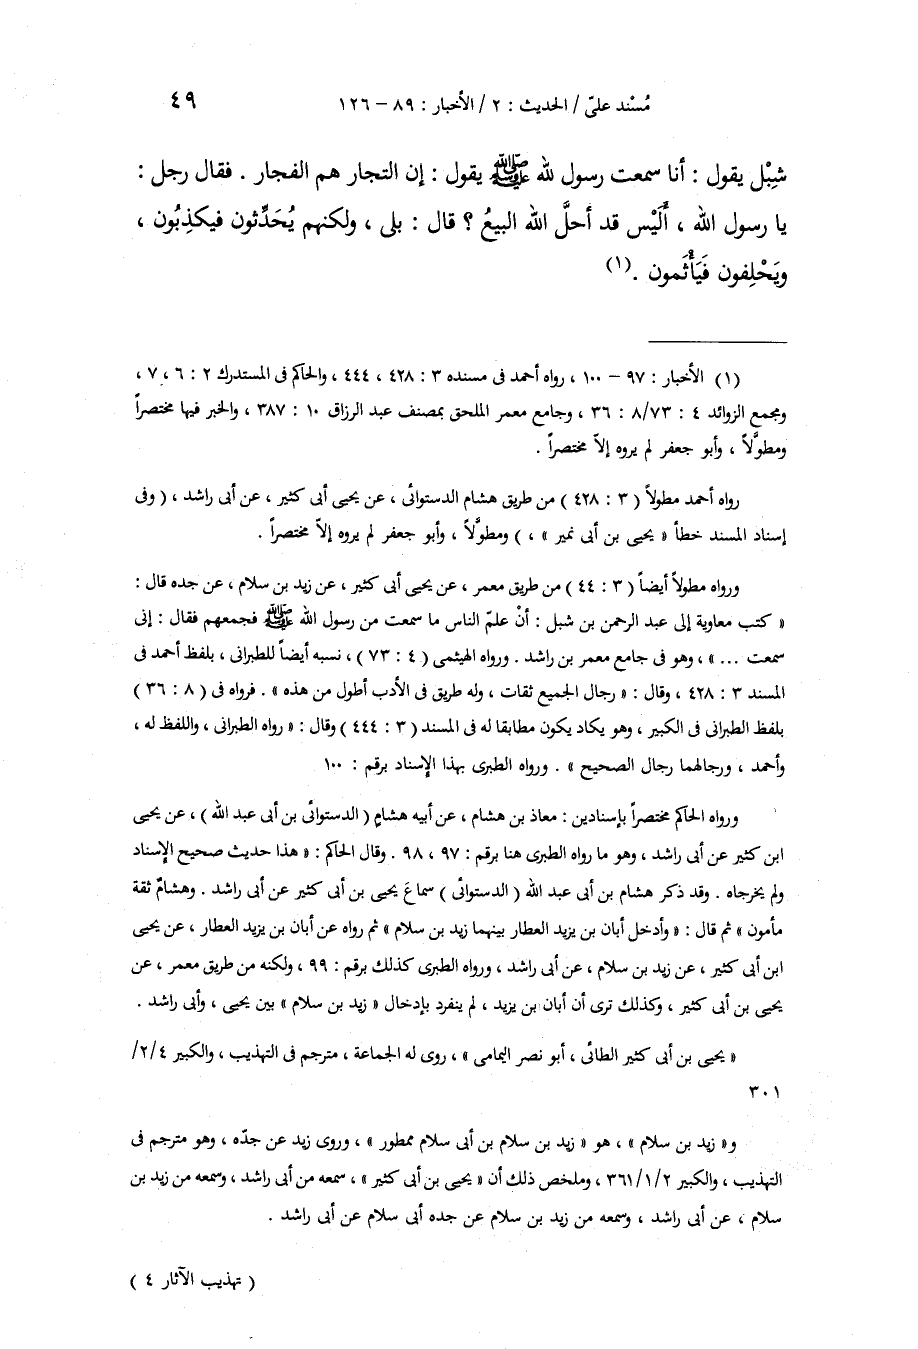 مُسْند علىّ / الحديث : ٢ / الأخبار : ٨٩ – ١٢٦ ٤٩
شِبْل يقول : أنا سمعت رسول لله ﷺ يقول : إن التجار هم الفجار . فقال رجل :
يا رسول الله ، أَلَيْس قد أحلَّ الله البيعُ ؟ قال : بلى ، ولكنهم يُحَدِّثون فيكذِبُون ،
ويَحْلِفون فَيَأْثَمون .(١)
(١) الأخبار : ٩٧ – ١٠٠ ، رواه أحمد فى مسنده ٣ : ٤٢٨ ، ٤٤٤ ، والحاكم فى المستدرك ٢ : ٦ ، ٧ ،
ومجمع الزوائد ٤ : ٨/٧٣ : ٣٦ ، وجامع معمر الملحق بمصنف عبد الرزاق ١٠ : ٣٨٧ ، والخبر فيها مختصراً
ومطوَّلاً ، وأبو جعفر لم يروه إلاّ مختصراً .
رواه أحمد مطولاً ( ٣ : ٤٢٨ ) من طريق هشام الدستوائى ، عن يحيى أبى كثير ، عن أبى راشد ، ( وفى
إسناد المسند خطأ « يحيى بن أبى نمير » ، ) ومطوَّلاً ، وأبو جعفر لم يروه إلاّ مختصراً .
ورواه مطولاً أيضاً ( ٣ : ٤٤ ) من طريق معمر ، عن يحيى أبى كثير ، عن زيد بن سلام ، عن جده قال :
« كتب معاوية إلى عبد الرحمن بن شبل : أنْ علمّ الناس ما سمعت من رسول الله ﷺ فجمعهم فقال : إنى
سمعت ... » ، وهو فى جامع معمر بن راشد . ورواه الهيثمى ( ٤ : ٧٣ ) ، نسبه أيضاً للطبرانى ، بلفظ أحمد فى
المسند ٣ : ٤٢٨ ، وقال : « رجال الجميع ثقات ، وله طريق فى الأدب أطول من هذه » . فرواه فى ( ٨ : ٣٦ )
بلفظ الطبرانى فى الكبير ، وهو يكاد يكون مطابقا له فى المسند ( ٣ : ٤٤٤ ) وقال : « رواه الطبرانى ، واللفظ له ،
وأحمد ، ورجالهما رجال الصحيح » . ورواه الطبرى بهذا الإسناد برقم : ١٠٠
ورواه الحاكم مختصراً بإسنادين : معاذ بن هشام ، عن أبيه هشام ( الدستوائى بن أبى عبد الله ) ، عن يحيى
ابن كثير عن أبى راشد ، وهو ما رواه الطبرى هنا برقم : ٩٧ ، ٩٨ . وقال الحاكم : « هذا حديث صحيح الإسناد
ولم يخرجاه . وقد ذكر هشام بن أبى عبد الله ( الدستوائى ) سماعَ يحيى بن أبى كثير عن أبى راشد . وهشامٌ ثقة
مأمون » ثم قال : « وأدخل أبان بن يزيد العطار بينهما زيد بن سلام » ثم رواه عن أبان بن يزيد العطار ، عن يحيى
ابن أبى كثير ، عن زيد بن سلام ، عن أبى راشد ، ورواه الطبرى كذلك برقم : ٩٩ ، ولكنه من طريق معمر ، عن
يحيى بن أبى كثير ، وكذلك ترى أن أبان بن يزيد ، لم ينفرد بإدخال « زيد بن سلام » بين يحيى ، وأبى راشد .
« يحيى بن أبى كثير الطائى ، أبو نصر اليمامى » ، روى له الجماعة ، مترجم فى التهذيب ، والكبير ٢/٤/
٣٠١
و« زيد بن سلام » ، هو « زيد بن سلام بن أبى سلام ممطور » ، وروى زيد عن جدّه ، وهو مترجم فى
التهذيب ، والكبير ٣٦١/١/٢ ، وملخص ذلك أن « يحيى بن أبى كثير » ، سمعه من أبى راشد ، وسمعه من زيد بن
سلام ، عن أبى راشد ، وسمعه من زيد بن سلام عن جده أبى سلام عن أبى راشد .
( تهذيب الآثار ٤ )